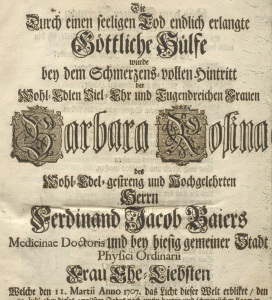 Die
Durch einen seeligen Tod endlich erlangte
Göttliche Hülfe
wurde
bey dem Schmertzens-vollen Hintritt
der
Wohl-Edlen Viel-Ehr und Tugendreichen Frauen
Barbara Rosina
des
Wohl-Edel-gestreng und Hochgelehrten
Herrn
Ferdinand Jacob Baiers
Medicinae Doctoris und bey hiesig gemeiner Stadt
Physici Ordinarii
Frau Ehe-Liebsten
Welche den 11. Martii Anno 1707. das Licht dieser Welt erblicket / den